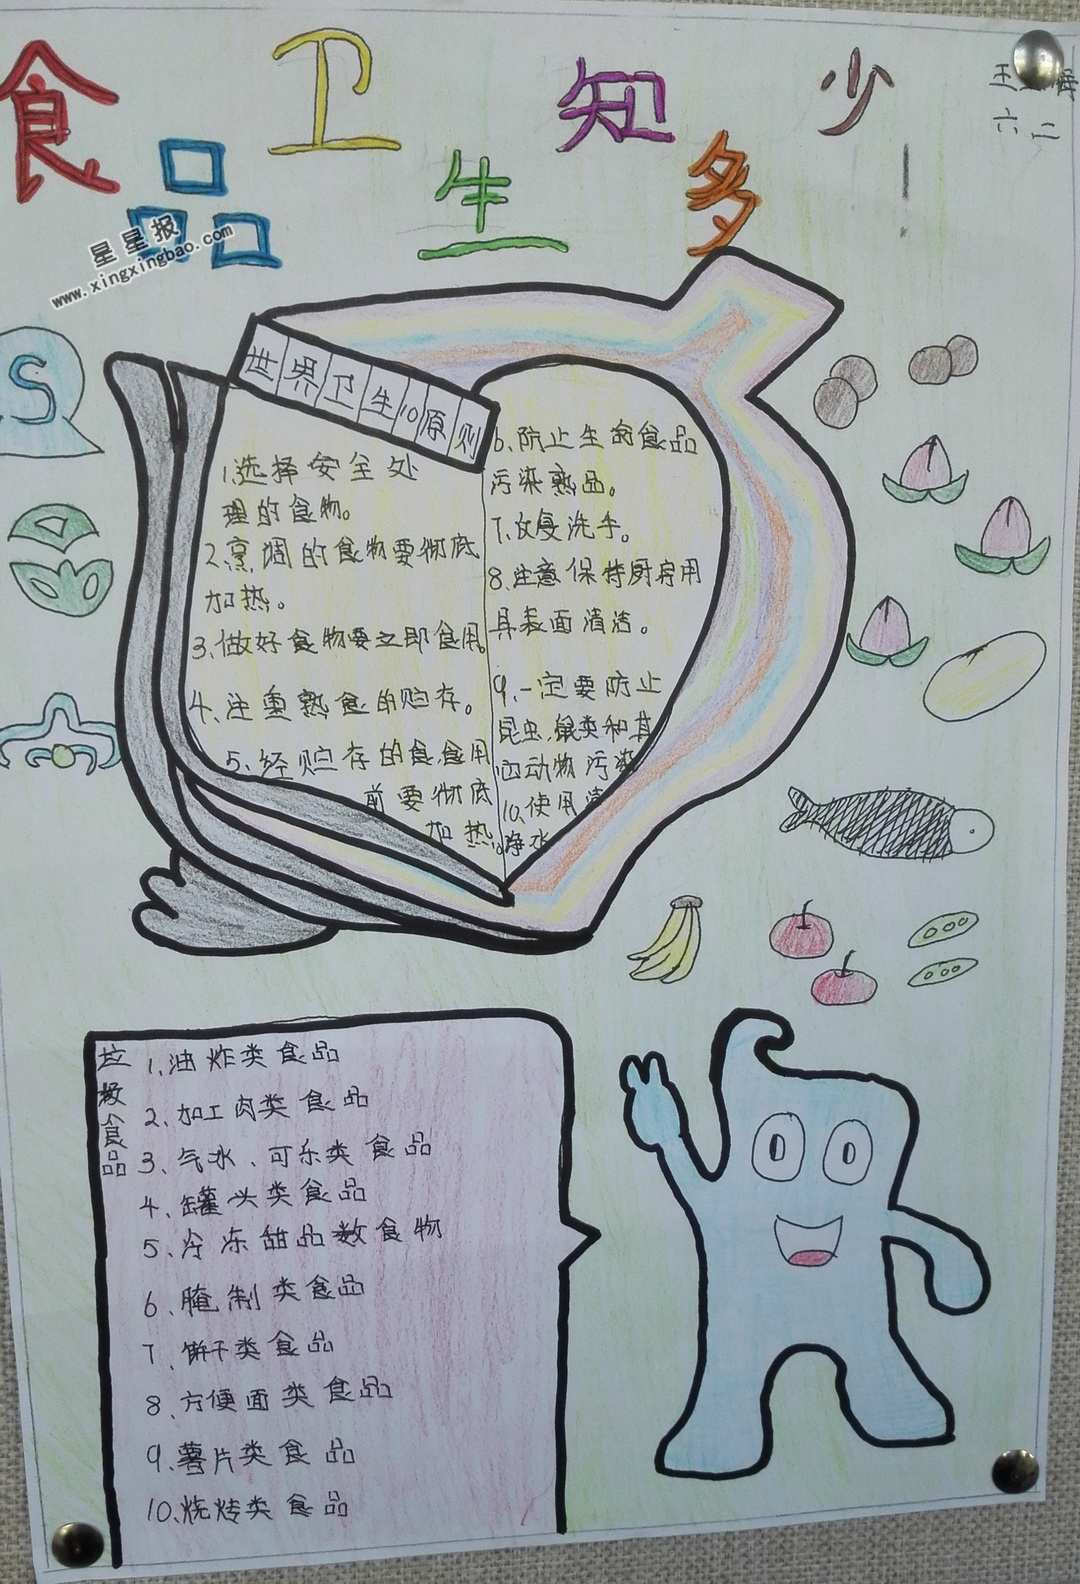 食品卫生知多少!
六二
星星报
www.xingxingbao.com
S
世界卫生10原则
1.选择安全处
理的食物。
2.烹调的食物要彻底
加热。
3.做好食物要立即食用。
4.注重熟食的贮存。
5.经贮存的食食用
前要彻底
加热。
6.防止生的食品
污染熟品。
7.反复洗手。
8.注意保持厨房用
具表面清洁。
9.一定要防止
昆虫.鼠类和其
动物污染
10.使用
净水
垃圾食品
1、油炸类食品
2、加工肉类食品
3、气水、可乐类食品
4、罐头类食品
5、冷冻甜品数食物
6、腌制类食品
7、饼干类食品
8、方便面类食品
9、薯片类食品
10、烧烤类食品